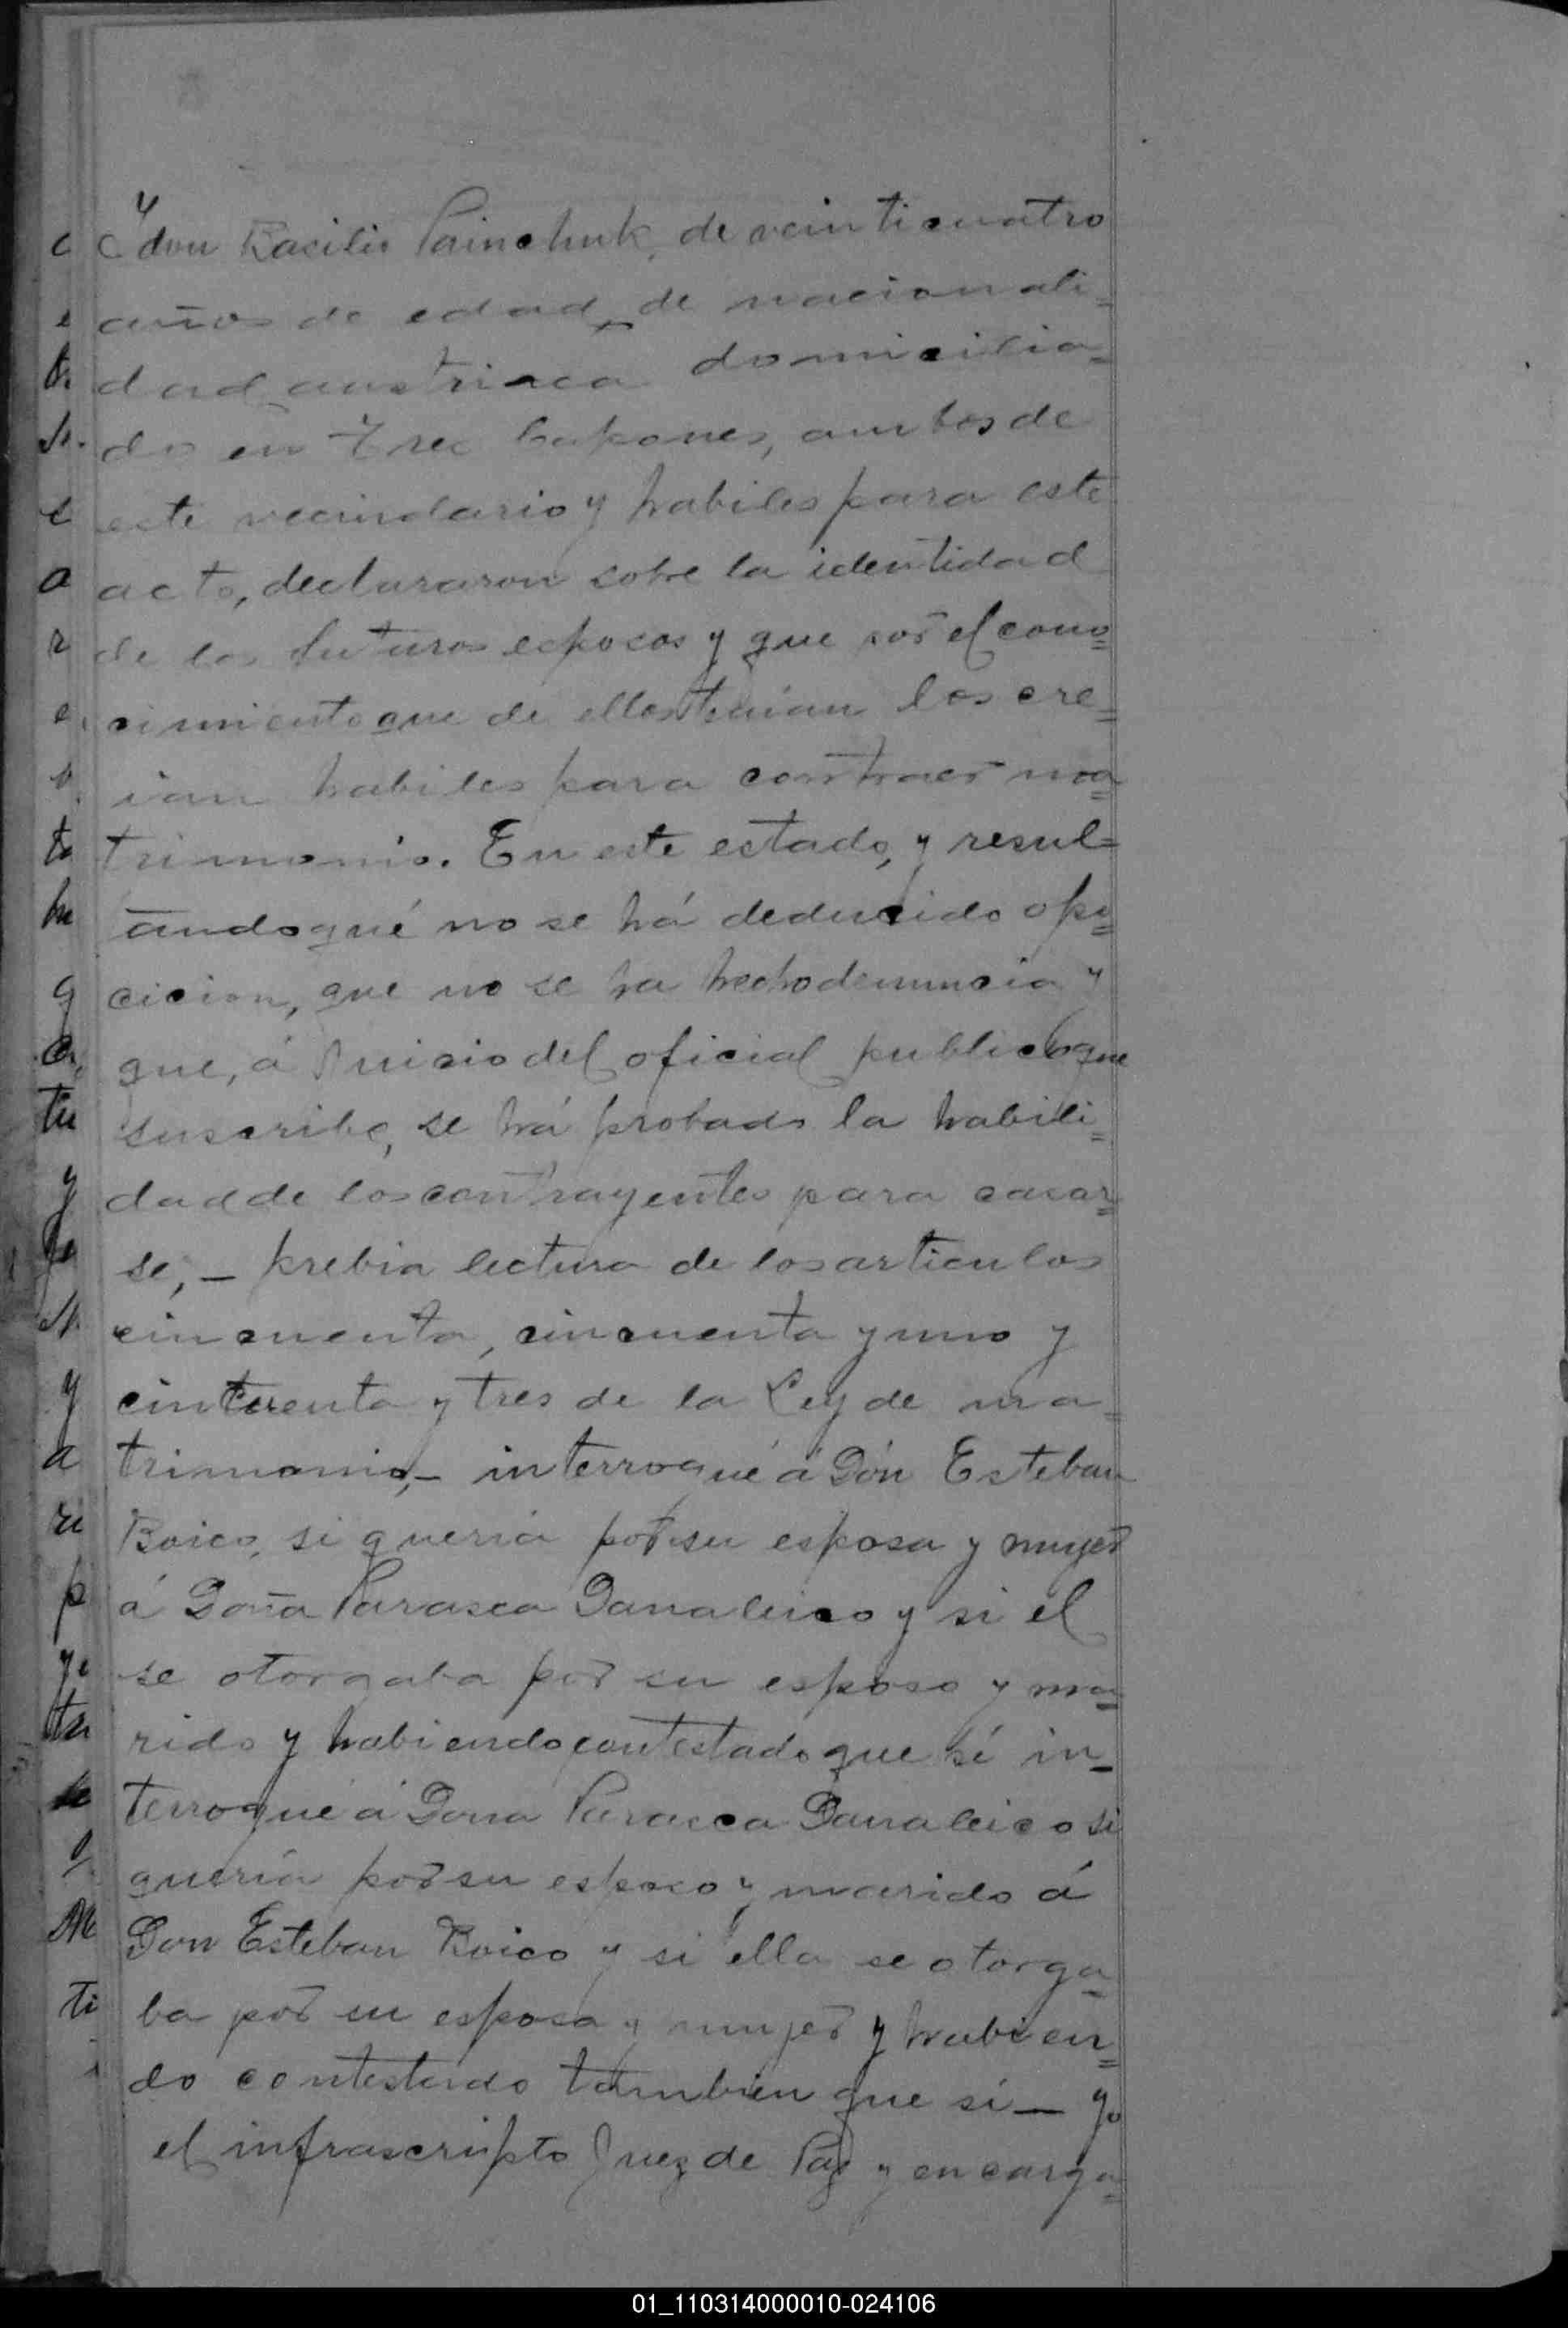 y
don Basilio Painchuk, de veinticuatro
años de edad, de nacionali=
dad austriaca domicilia=
do en Trec Capones, ambos de
este vecindario y habiles para este
acto, declararon sobre la identidad
de los futuros esposos y que por el cono=
cimiento que de ellos tenían los cre=
ian habiles para contraer ma=
trimonio. En este estado, y resul=
tando qué no se há deducido opo=
cicion, que no se ha hecho denuncia y
que, á juicio del oficial publico que
suscribe, se há probado la habili=
dad de los contrayentes para casar=
se, – prebia lectura de los articulos
cincuenta, cincuenta y uno y
cincuenta y tres de la Ley de ma=
trimonio, – interrogué á Dón Esteban
Boico, si queria por su esposa y muger
á Doña Parasca Danaleico y si el
se otorgaba por su esposo y ma=
rido y habiendo contestado que sí in=
terrogué á Dona Parasca Danaleico si
quería por su esposo y marido á
Don Esteban Boico y si ella se otorga=
ba por su esposa y mujer y habien=
do contestado tambien que sí — yo
el infrascripto Juez de Paz y encarga=
01_110314000010-024106